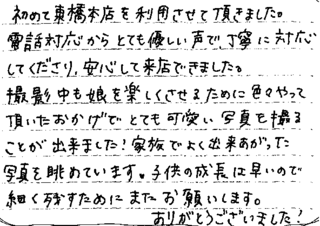 初めて東橋本店を利用させて頂きました。
電話対応からとても優しい声で、丁寧に対応
してくださり、安心して来店できました。
撮影中も娘を楽しくさせるために色々やって
頂いたおかげでとても可愛い写真を撮る
ことが出来ました！家族でよく出来あがった
写真を眺めています。子供の成長は早いので
細く残すためにまたお願いします。
ありがとうございました！